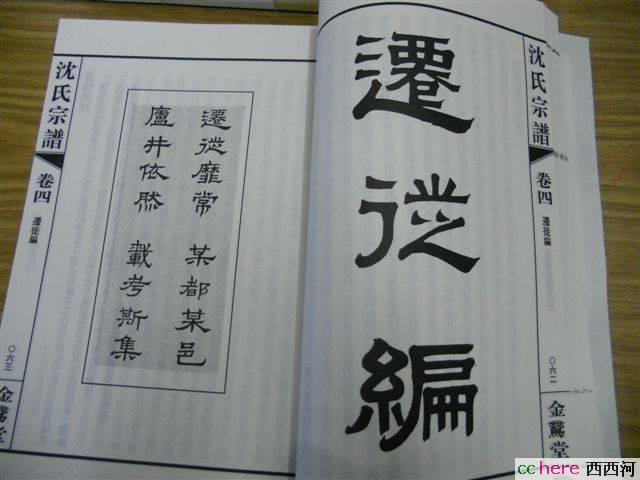 沈氏宗譜
卷四
遷徙編
〇六二
金鵞堂
遷徙編
遷徙靡常 某都某邑
廬井依然 載考斯集
沈氏宗譜
卷四
遷徙編
〇六三
金鵞堂
cchere 西西河